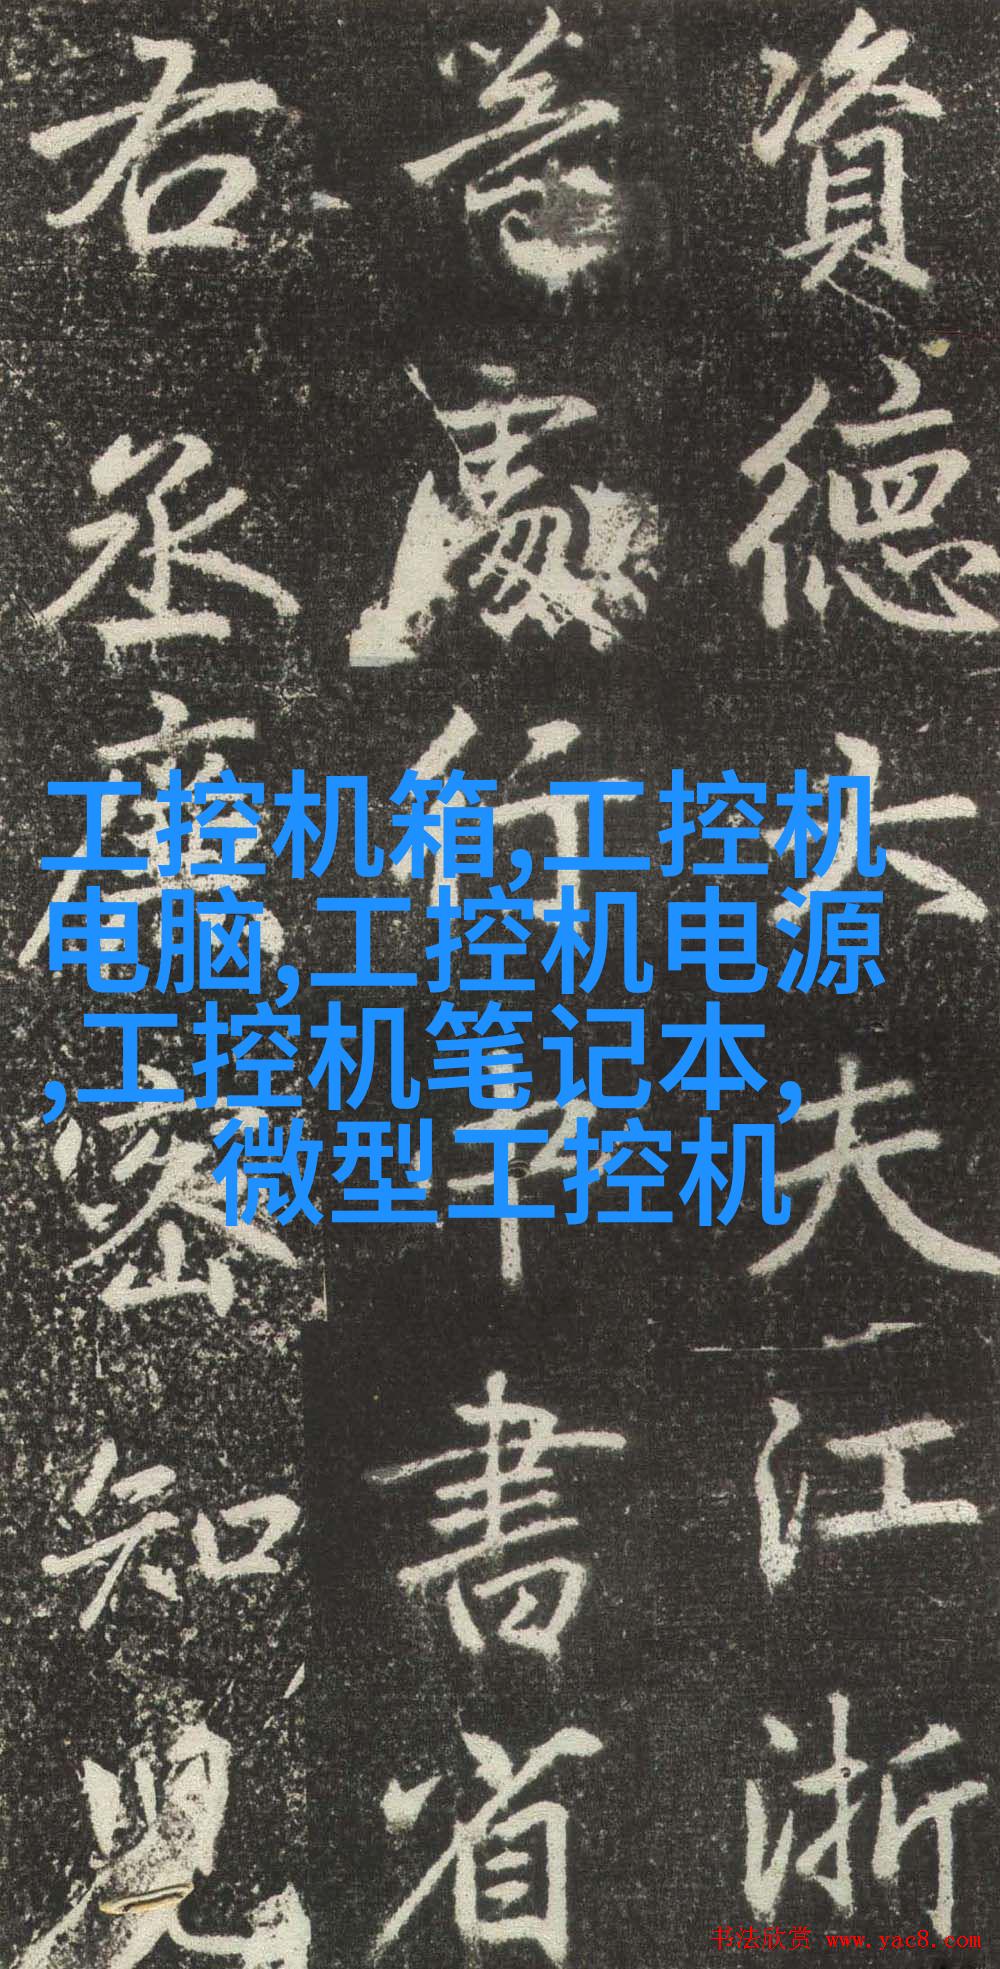 資德大夫江浙
等處行中書省
右丞廉密知兒
工控机箱,工控机
电脑,工控机电源
,工控机笔记本,
微型工控机
书法欣赏 www.yac8.com